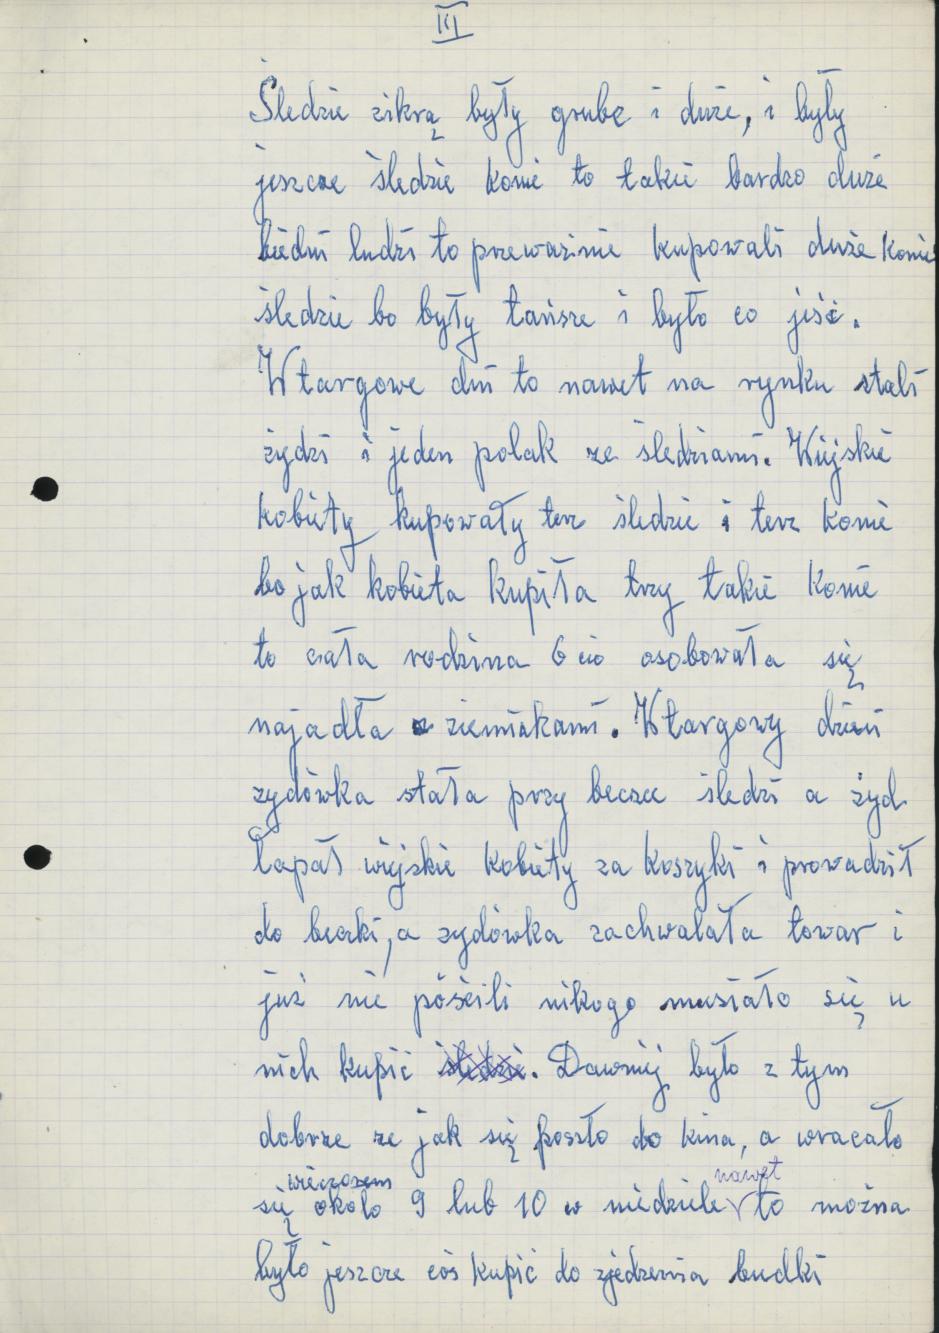 III
Śledzie zikrą były grubę i duże, i były
jeszcze śledzie konie to takie bardzo duże
biedni ludzi to przeważnie kupowali duże konie
śledzie bo były tańsze i było co jiść.
W targowe dni to nawet na rynku stali
żydzi i jeden polak ze śledziami. Wiejskie
kobiety kupowały tesz śledzie i tesz konie
bo jak kobieta kupiła trzy takie konie
to cała rodzina 6 cio osobowała się
najadła z ziemiakami. W targowy dzień
zydówka stała przy beczce śledzi a żyd
łapał wiejskie kobiety za koszyki i prowadził
do beczki, a zydówka zachwalała towar i
już nie póścili nikogo musiało się u
nich kupić śledzie. Dawniej było z tym
dobrze ze jak się poszło do kina, a wracało
wieczorem nawet
się około 9 lub 10 w niedziele to można
było jeszcze coś kupić do zjedzenia budki